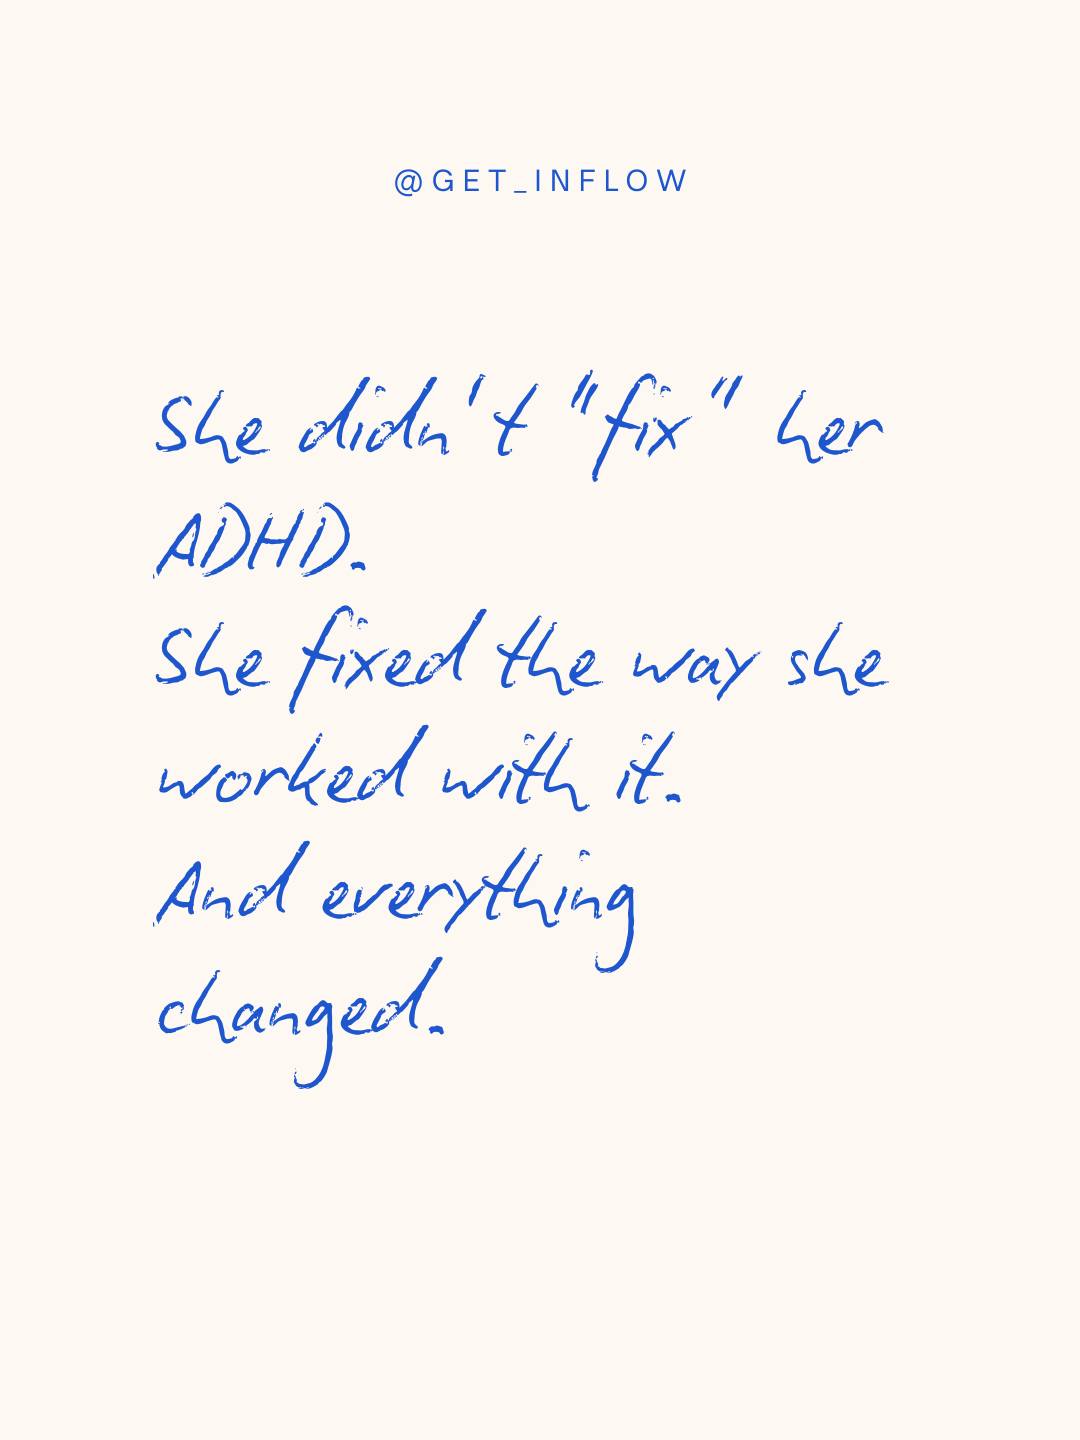 @GET_INFLOW
She didn't "fix" her
ADHD.
She fixed the way she
worked with it.
And everything
changed.